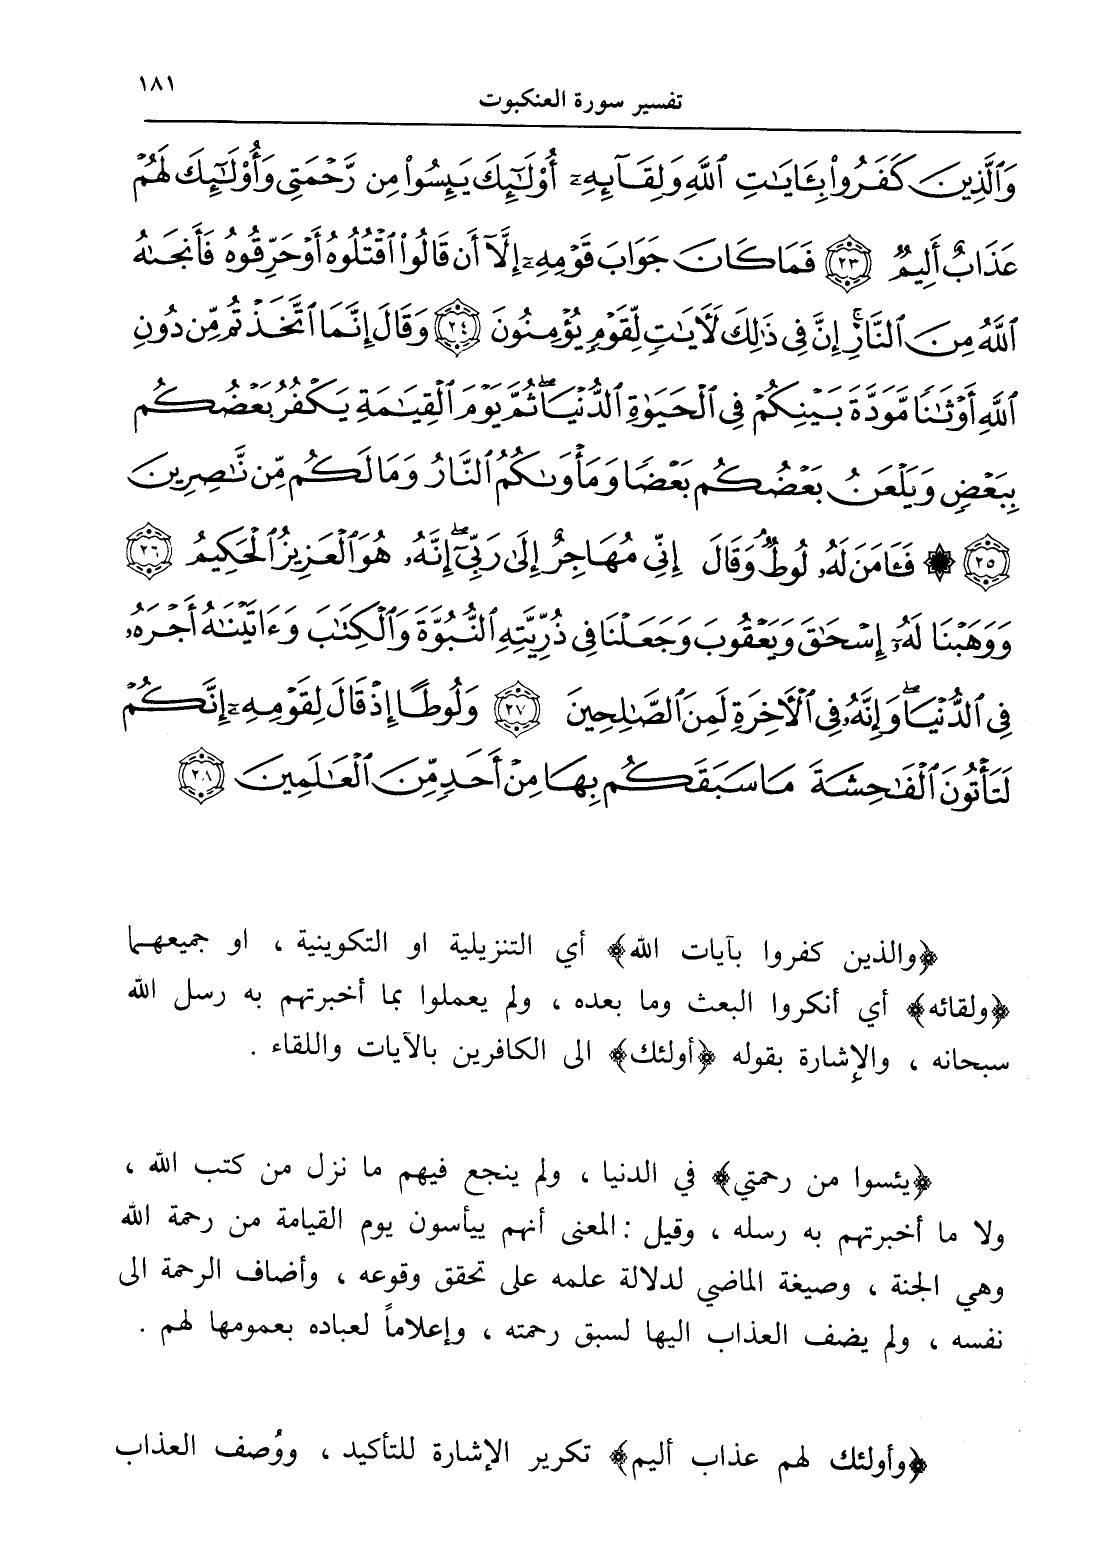 ١٨١
تفسير سورة العنكبوت
وَٱلَّذِينَ كَفَرُوا۟ بِـَٔايَٰتِ ٱللَّهِ وَلِقَآئِهِۦٓ أُو۟لَٰٓئِكَ يَئِسُوا۟ مِن رَّحْمَتِى وَأُو۟لَٰٓئِكَ لَهُمْ
عَذَابٌ أَلِيمٌ ٢٣ فَمَا كَانَ جَوَابَ قَوْمِهِۦٓ إِلَّآ أَن قَالُوا۟ ٱقْتُلُوهُ أَوْ حَرِّقُوهُ فَأَنجَىٰهُ
ٱللَّهُ مِنَ ٱلنَّارِ ۚ إِنَّ فِى ذَٰلِكَ لَءَايَٰتٍ لِّقَوْمٍ يُؤْمِنُونَ ٢٤ وَقَالَ إِنَّمَا ٱتَّخَذْتُم مِّن دُونِ
ٱللَّهِ أَوْثَٰنًا مَّوَدَّةَ بَيْنِكُمْ فِى ٱلْحَيَوٰةِ ٱلدُّنْيَا ۖ ثُمَّ يَوْمَ ٱلْقِيَٰمَةِ يَكْفُرُ بَعْضُكُم
بِبَعْضٍ وَيَلْعَنُ بَعْضُكُم بَعْضًا وَمَأْوَىٰكُمُ ٱلنَّارُ وَمَا لَكُم مِّن نَّٰصِرِينَ
٢٥ ۞ فَـَٔامَنَ لَهُۥ لُوطٌ ۘ وَقَالَ إِنِّى مُهَاجِرٌ إِلَىٰ رَبِّىٓ ۖ إِنَّهُۥ هُوَ ٱلْعَزِيزُ ٱلْحَكِيمُ ٢٦
وَوَهَبْنَا لَهُۥٓ إِسْحَٰقَ وَيَعْقُوبَ وَجَعَلْنَا فِى ذُرِّيَّتِهِ ٱلنُّبُوَّةَ وَٱلْكِتَٰبَ وَءَاتَيْنَٰهُ أَجْرَهُۥ
فِى ٱلدُّنْيَا ۖ وَإِنَّهُۥ فِى ٱلْءَاخِرَةِ لَمِنَ ٱلصَّٰلِحِينَ ٢٧ وَلُوطًا إِذْ قَالَ لِقَوْمِهِۦٓ إِنَّكُمْ
لَتَأْتُونَ ٱلْفَٰحِشَةَ مَا سَبَقَكُم بِهَا مِنْ أَحَدٍ مِّنَ ٱلْعَٰلَمِينَ ٢٨
﴿والذين كفروا بآيات الله﴾ أي التنزيلية او التكوينية ، او جميعهما
﴿ولقائه﴾ أي أنكروا البعث وما بعده ، ولم يعملوا بما أخبرتهم به رسل الله
سبحانه ، والإشارة بقوله ﴿أولئك﴾ الى الكافرين بالآيات واللقاء .
﴿يئسوا من رحمتي﴾ في الدنيا ، ولم ينجع فيهم ما نزل من كتب الله ،
ولا ما أخبرتهم به رسله ، وقيل : المعنى أنهم ييأسون يوم القيامة من رحمة الله
وهي الجنة ، وصيغة الماضي لدلالة علمه على تحقق وقوعه ، وأضاف الرحمة الى
نفسه ، ولم يضف العذاب اليها لسبق رحمته ، وإعلاماً لعباده بعمومها لهم .
﴿وأولئك لهم عذاب أليم﴾ تكرير الإشارة للتأكيد ، ووُصف العذاب